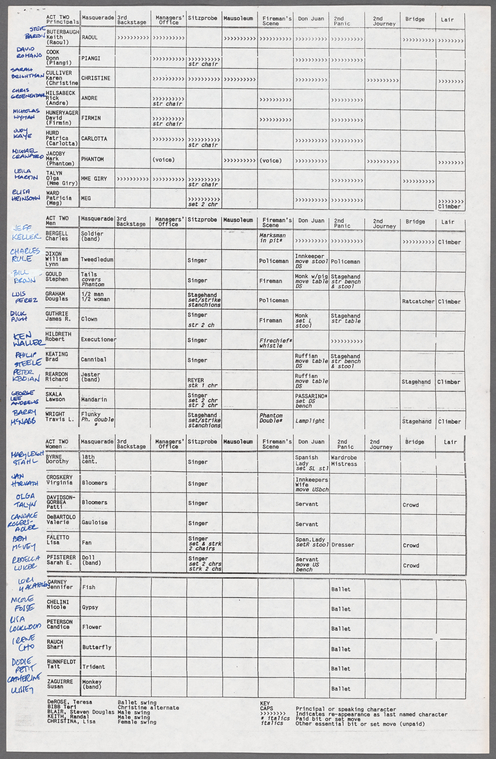 ACT TWO Principals Masquerade 3rd Backstage Managers' Office Sitzprobe Mausoleum Fireman's Scene Don Juan 2nd Panic 2nd Journey Bridge Lair
BUTERBAUGH Keith (Raoul) RAOUL
DAVID ROMANO COOK Donn (Piangi) PIANGI str chair
SARAH CULLIVER Karen (Christine CHRISTINE
CHRIS HILSABECK Rick (Andre) ANDRE str chair
NICHOLAS WYMAN HUNERYAGER David (Firmin) FIRMIN str chair
JUDY KAYE HURD Patrice (Carlotta) CARLOTTA str chair
MICHAEL CRAWFORD JACOBY Mark (Phantom) PHANTOM (voice) (voice)
LEILA MARTIN TALYN Olga (Mme Giry) MME GIRY str chair
ELISA HEINSOHN WARD Patricia (Meg) MEG set 2 chr Climber
ACT TWO Men Masquerade 3rd Backstage Managers' Office Sitzprobe Mausoleum Fireman's Scene Don Juan 2nd Panic 2nd Journey Bridge Lair
JEFF KELLER BERGELL Charles Soldier (band) Marksman in pit# Climber
CHARLES RULE DIXON William Lynn Tweedledum Singer Policeman Innkeeper move stool DS Policeman
BILL BROWN GOULD Stephen Tails covers Phantom Singer Fireman Monk w/pig move table DS Stagehand str bench & stool
LUIS PEREZ GRAHAM Douglas 1/2 man 1/2 woman Stagehand set/strike stanchions Policeman Ratcatcher Climber
DICK GUTHRIE James R. Clown Singer str 2 ch Fireman Monk set L stool Stagehand str table
KEN WALLER HILDRETH Robert Executioner Firechief# whistle
PHILIP STEELE KEATING Brad Cannibal Singer Ruffian move table DS Stagehand str bench & stool
PETER KEVOIAN REARDON Richard Jester (band) REYER stk 1 chr Ruffian move table DS Stagehand Climber
GEORGE LEE ANDREWS SKALA Lawson Mandarin Singer set 2 chr str 2 chr PASSARINO# set DS bench
BARRY McNABB WRIGHT Travis L. Flunky Ph. double # Stagehand set/strike stanchions Phantom Double# Lamplight Stagehand Climber
ACT TWO Women Masquerade 3rd Backstage Managers' Office Sitzprobe Mausoleum Fireman's Scene Don Juan 2nd Panic 2nd Journey Bridge Lair
MARYLEIGH STAHL BYRNE Dorothy 18th cent. Singer Spanish Lady set SL stl Wardrobe Mistress
JAN HORVATH CROSKERY Virginia Bloomers Singer Innkeepers Wife move USbch
OLGA TALYN DAVIDSON-GORBEA Patti Bloomers Singer Servant Crowd
CANDACE ROGERS-ADLER DeBARTOLO Valerie Gauloise Singer Crowd
BETH McVEY FALETTO Lisa Fan Singer set & strk 2 chairs Span.Lady setR stool Dresser Crowd
REBECCA LUKER PFISTERER Sarah E. Doll (band) Singer set 2 chrs strk 2 chs Servant move US bench
LORI DARNEY Jennifer Fish Ballet
NICOLE FOSSE CHELINI Nicole Gypsy Ballet
LISA LOCKWOOD PETERSON Candice Flower Ballet
IRENE CHO RAUCH Shari Butterfly Ballet
DODIE PETTIT RUNNFELDT Tait Trident Ballet
CATHERINE ULISSEY ZAGUIRRE Susan Monkey (band) Ballet
DeROSE, Teresa Ballet swing KEY
BIBB Teri Christine alternate CAPS Principal or speaking character
BLAIR, Steven Douglas Male swing >>>>>>>> Indicates re-appearance as last named character
KEITH, Randal Male swing # italics Paid bit or set move
CHRISTINA, Lisa Female swing italics Other essential bit or set move (unpaid)